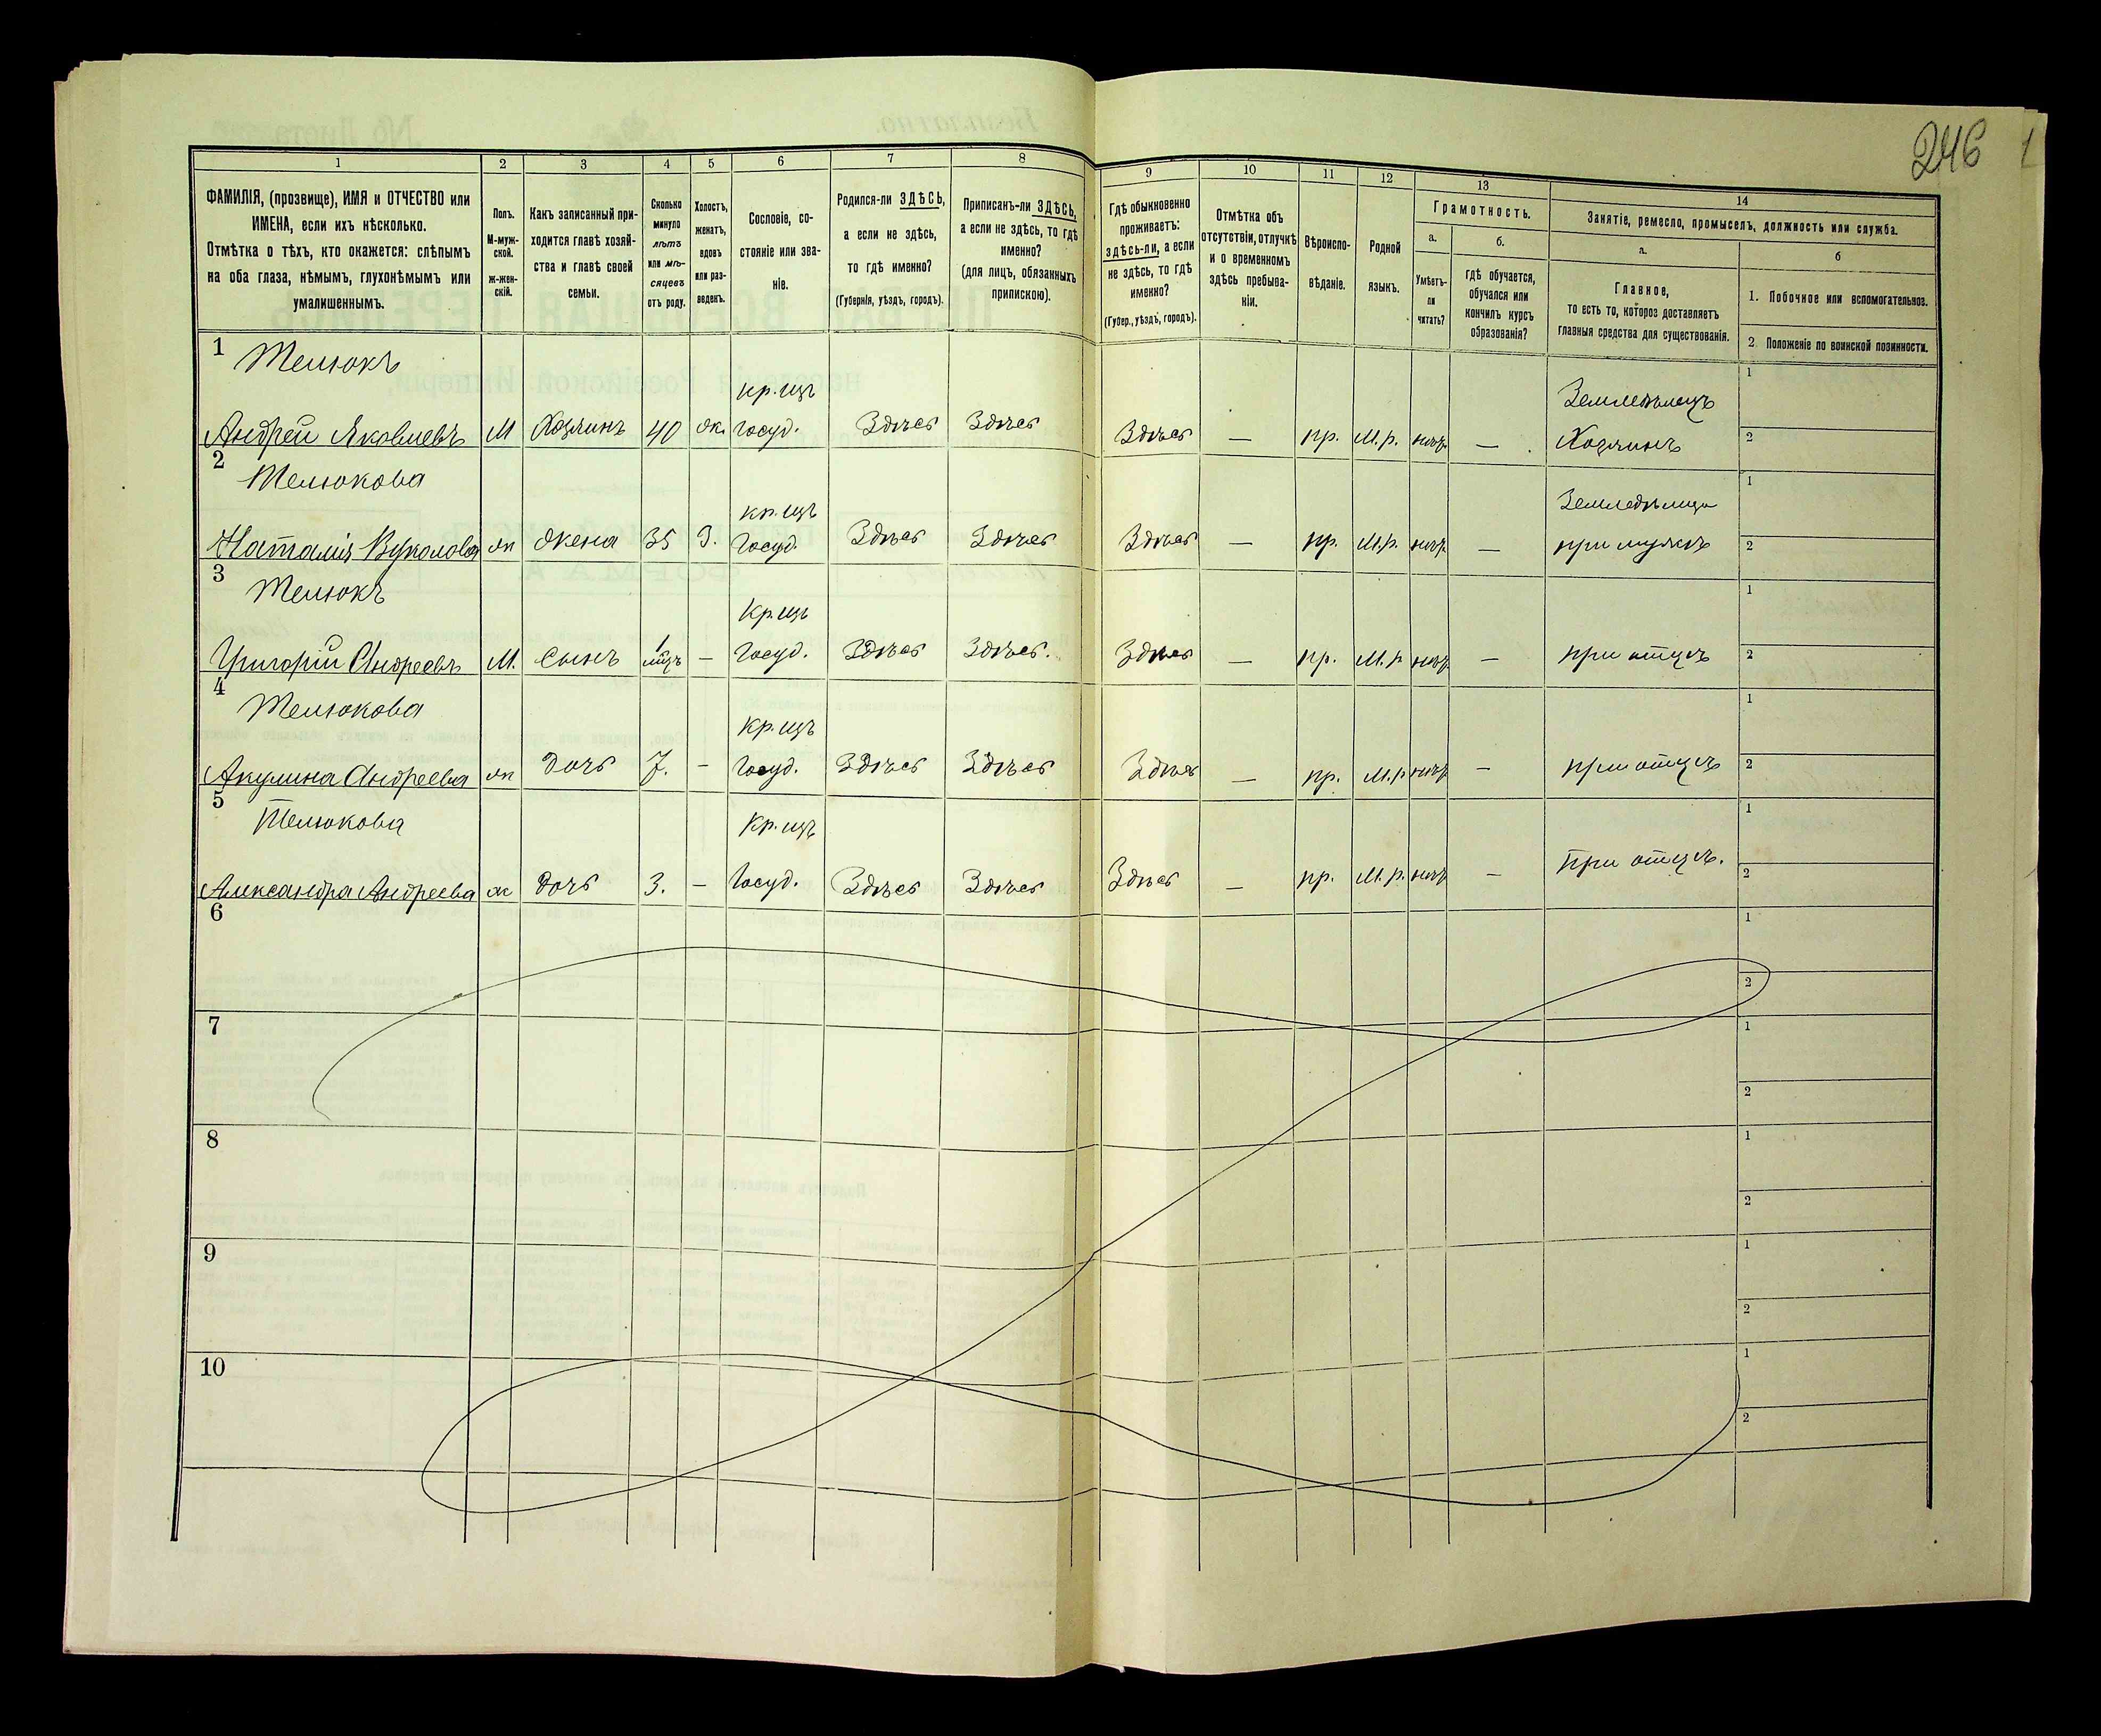 246
1 2 3 4 5 6 7 8 9 10 11 12 13 14
ФАМИЛІЯ, (прозвище), ИМЯ и ОТЧЕСТВО или
ИМЕНА, если ихъ нѣсколько.
Отмѣтка о тѣхъ, кто окажется: слѣпымъ
на оба глаза, нѣмымъ, глухонѣмымъ или
умалишеннымъ.
Полъ.
М-муж-
ской.
ж-жен-
скій.
Какъ записанный при-
ходится главѣ хозяй-
ства и главѣ своей
семьи.
Сколько
минуло
лѣтъ
или мѣ-
сяцевъ
отъ роду.
Холостъ,
женатъ,
вдовъ
или раз-
веденъ.
Сословіе, со-
стояніе или зва-
ніе.
Родился-ли ЗДѢСЬ,
а если не здѣсь,
то гдѣ именно?
(Губернія, уѣздъ, городъ).
Приписанъ-ли ЗДѢСЬ,
а если не здѣсь, то гдѣ
именно?
(для лицъ, обязанныхъ
припискою).
Гдѣ обыкновенно
проживаетъ:
здѣсь-ли, а если
не здѣсь, то гдѣ
именно?
(Губер., уѣздъ, городъ).
Отмѣтка объ
отсутствіи, отлучкѣ
и о временномъ
здѣсь пребыва-
ніи.
Вѣроиспо-
вѣданіе.
Родной
языкъ.
Грамотность.
а.
Умѣетъ-
ли
читать?
б.
гдѣ обучается,
обучался или
кончилъ курсъ
образованія?
Занятіе, ремесло, промыселъ, должность или служба.
а.
Главное,
то есть то, которое доставляетъ
главныя средства для существованія.
б
1. Побочное или вспомогательное.
2. Положеніе по воинской повинности.
1 Телюкъ
кр. изъ Земледѣлецъ 1
Андрей Яковлевъ М Хозяинъ 40 ж. госуд. Здѣсь Здѣсь Здѣсь — пр. М.р. нѣтъ — Хозяинъ 2
2 Телюкова
кр. изъ Земледѣлица 1
Наталія Вуколова ж жена 35 З. госуд. Здѣсь Здѣсь Здѣсь — пр. М.р. нѣтъ — при мужѣ 2
3 Телюкъ
Кр. изъ 1
Григорій Андреевъ М. сынъ 1 мѣц — госуд. Здѣсь Здѣсь. Здѣсь — пр. М.р нѣтъ — при отцѣ 2
4 Телюкова
Кр. изъ 1
Акулина Андреева ж дочь 7. — госуд. Здѣсь Здѣсь Здѣсь — пр. М.р нѣтъ — при отцѣ 2
5 Телюкова
Кр. изъ 1
Александра Андреева ж дочь 3. — госуд. Здѣсь Здѣсь Здѣсь — пр. М.р. нѣтъ — При отцѣ. 2
6 1
2
7 1
2
8 1
2
9 1
2
10 1
2